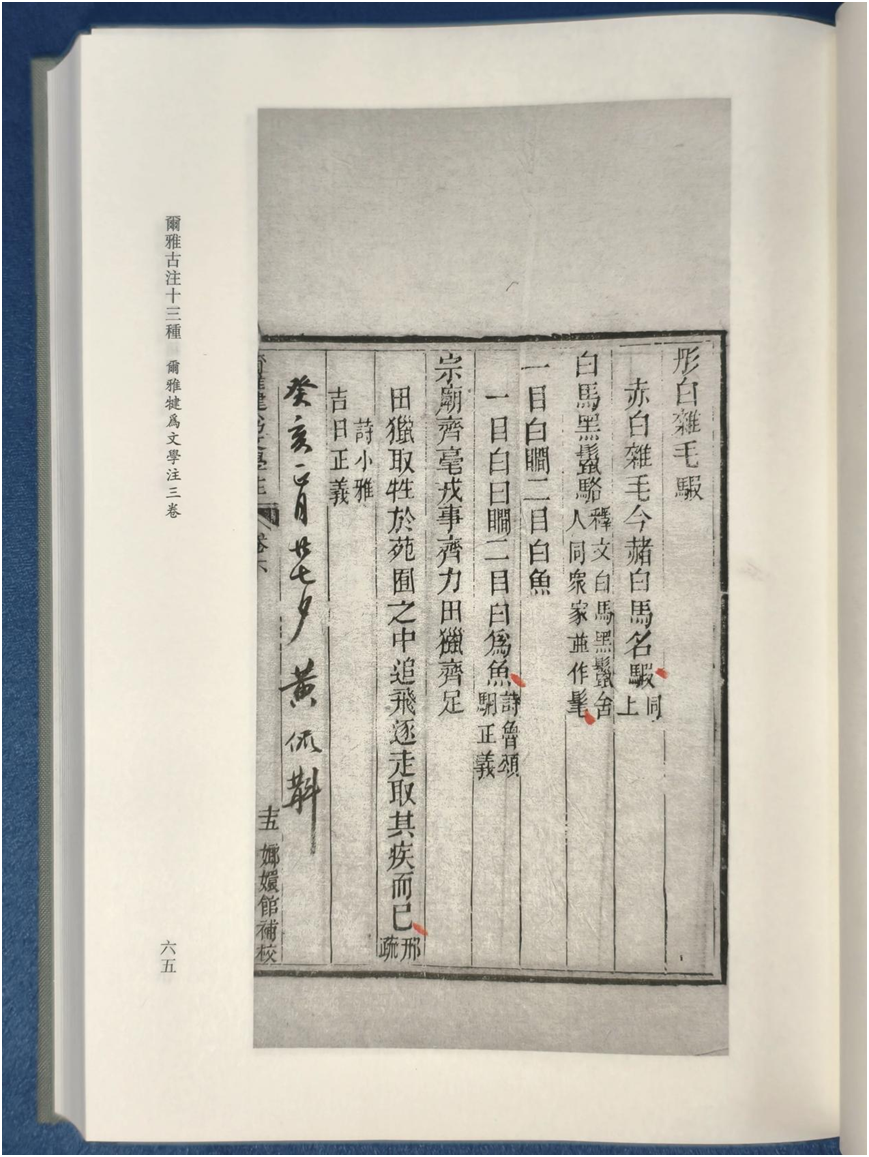 彤白雜毛騢
赤白雜毛今赭白馬名騢同上
白馬黑鬛駱釋文白馬黑鬛舍人同衆家並作髦
一目白瞷二目白魚
一目白曰瞷二目白爲魚詩魯頌駉正義
宗廟齊毫戎事齊力田獵齊足
田獵取牲於苑囿之中追飛逐走取其疾而已邢疏
詩小雅
吉日正義
癸亥二月廿七夕 黃侃斠
卷六
十五 嫏嬛館補校
爾雅古注十三種 爾雅犍爲文學注三卷
六五